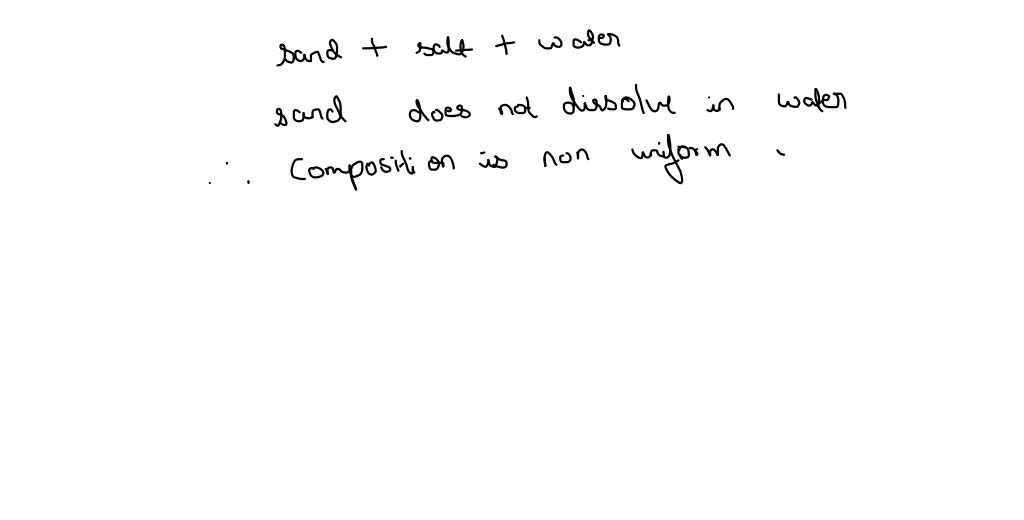 sand + salt + water
sand does not dissolve in water
∴ Composition is non uniform .